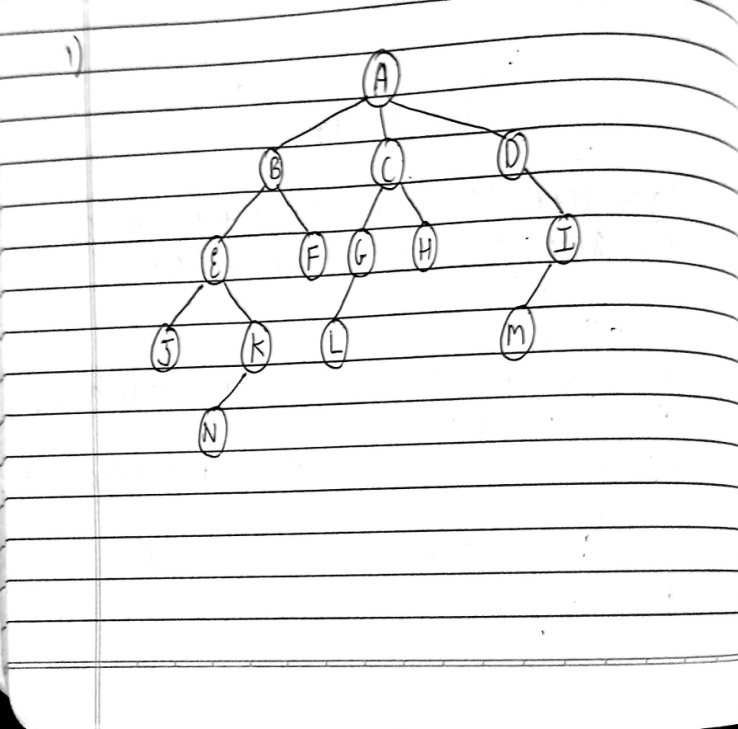 1)
A
B C D
E F G H I
J K L M
N